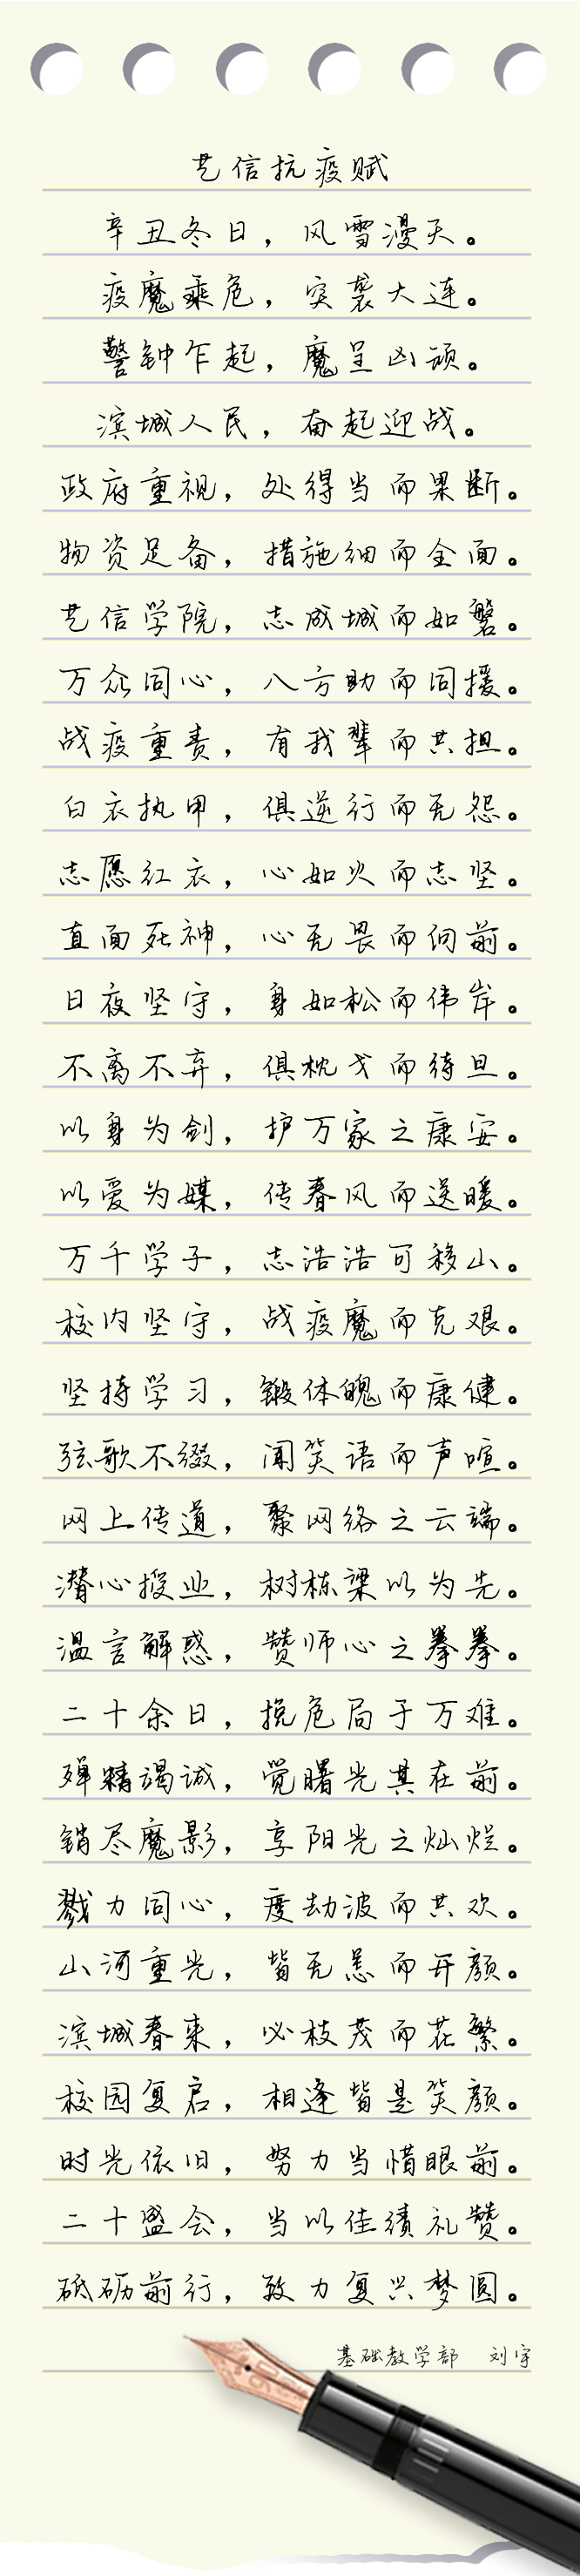 艺信抗疫赋
辛丑冬日，风雪漫天。
疫魔乘危，突袭大连。
警钟乍起，魔呈凶顽。
滨城人民，奋起迎战。
政府重视，处得当而果断。
物资足备，措施细而全面。
艺信学院，志成城而如磐。
万众同心，八方助而同援。
战疫重责，有我辈而共担。
白衣执甲，俱逆行而无怨。
志愿红衣，心如火而志坚。
直面死神，心无畏而向前。
日夜坚守，身如松而伟岸。
不离不弃，俱枕戈而待旦。
以身为剑，护万家之康安。
以爱为媒，传春风而送暖。
万千学子，志浩浩可移山。
校内坚守，战疫魔而克艰。
坚持学习，锻体魄而康健。
弦歌不缀，闻笑语而声喧。
网上传道，聚网络之云端。
潜心授业，树栋梁以为先。
温言解惑，赞师心之拳拳。
二十余日，挽危局于万难。
殚精竭诚，觉曙光其在前。
销尽魔影，享阳光之灿烂。
戮力同心，度劫波而共欢。
山河重光，皆无恙而开颜。
滨城春来，必枝茂而花繁。
校园复启，相逢皆是笑颜。
时光依旧，努力当惜眼前。
二十盛会，当以佳绩礼赞。
砥砺前行，致力复兴梦圆。
基础教学部 刘宇